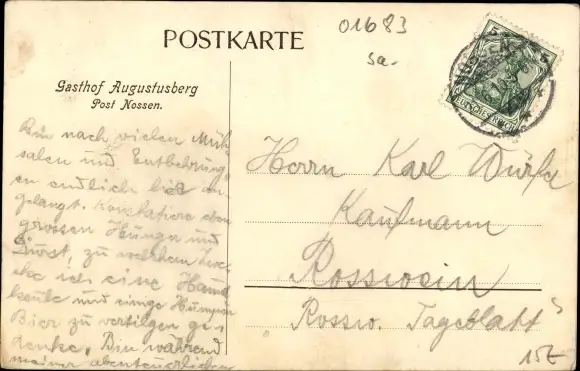 01683
POSTKARTE
sa.
Gasthof Augustusberg
Post Nossen.
Bin nach vielen Müh
salen und Entbehrung
en endlich hier an
gelangt. Konstatiere eben
grossen Hunger und
Durst, zu welchem
ich eine
keule und einige Humpen
Bier zu vertilgen ge
denke. Bin während
meiner abenteuerlichen
DEUTSCHES REICH
5 5
Herrn Karl
Kaufmann
Rosswein
„Rossw. Tageblatt"
15E